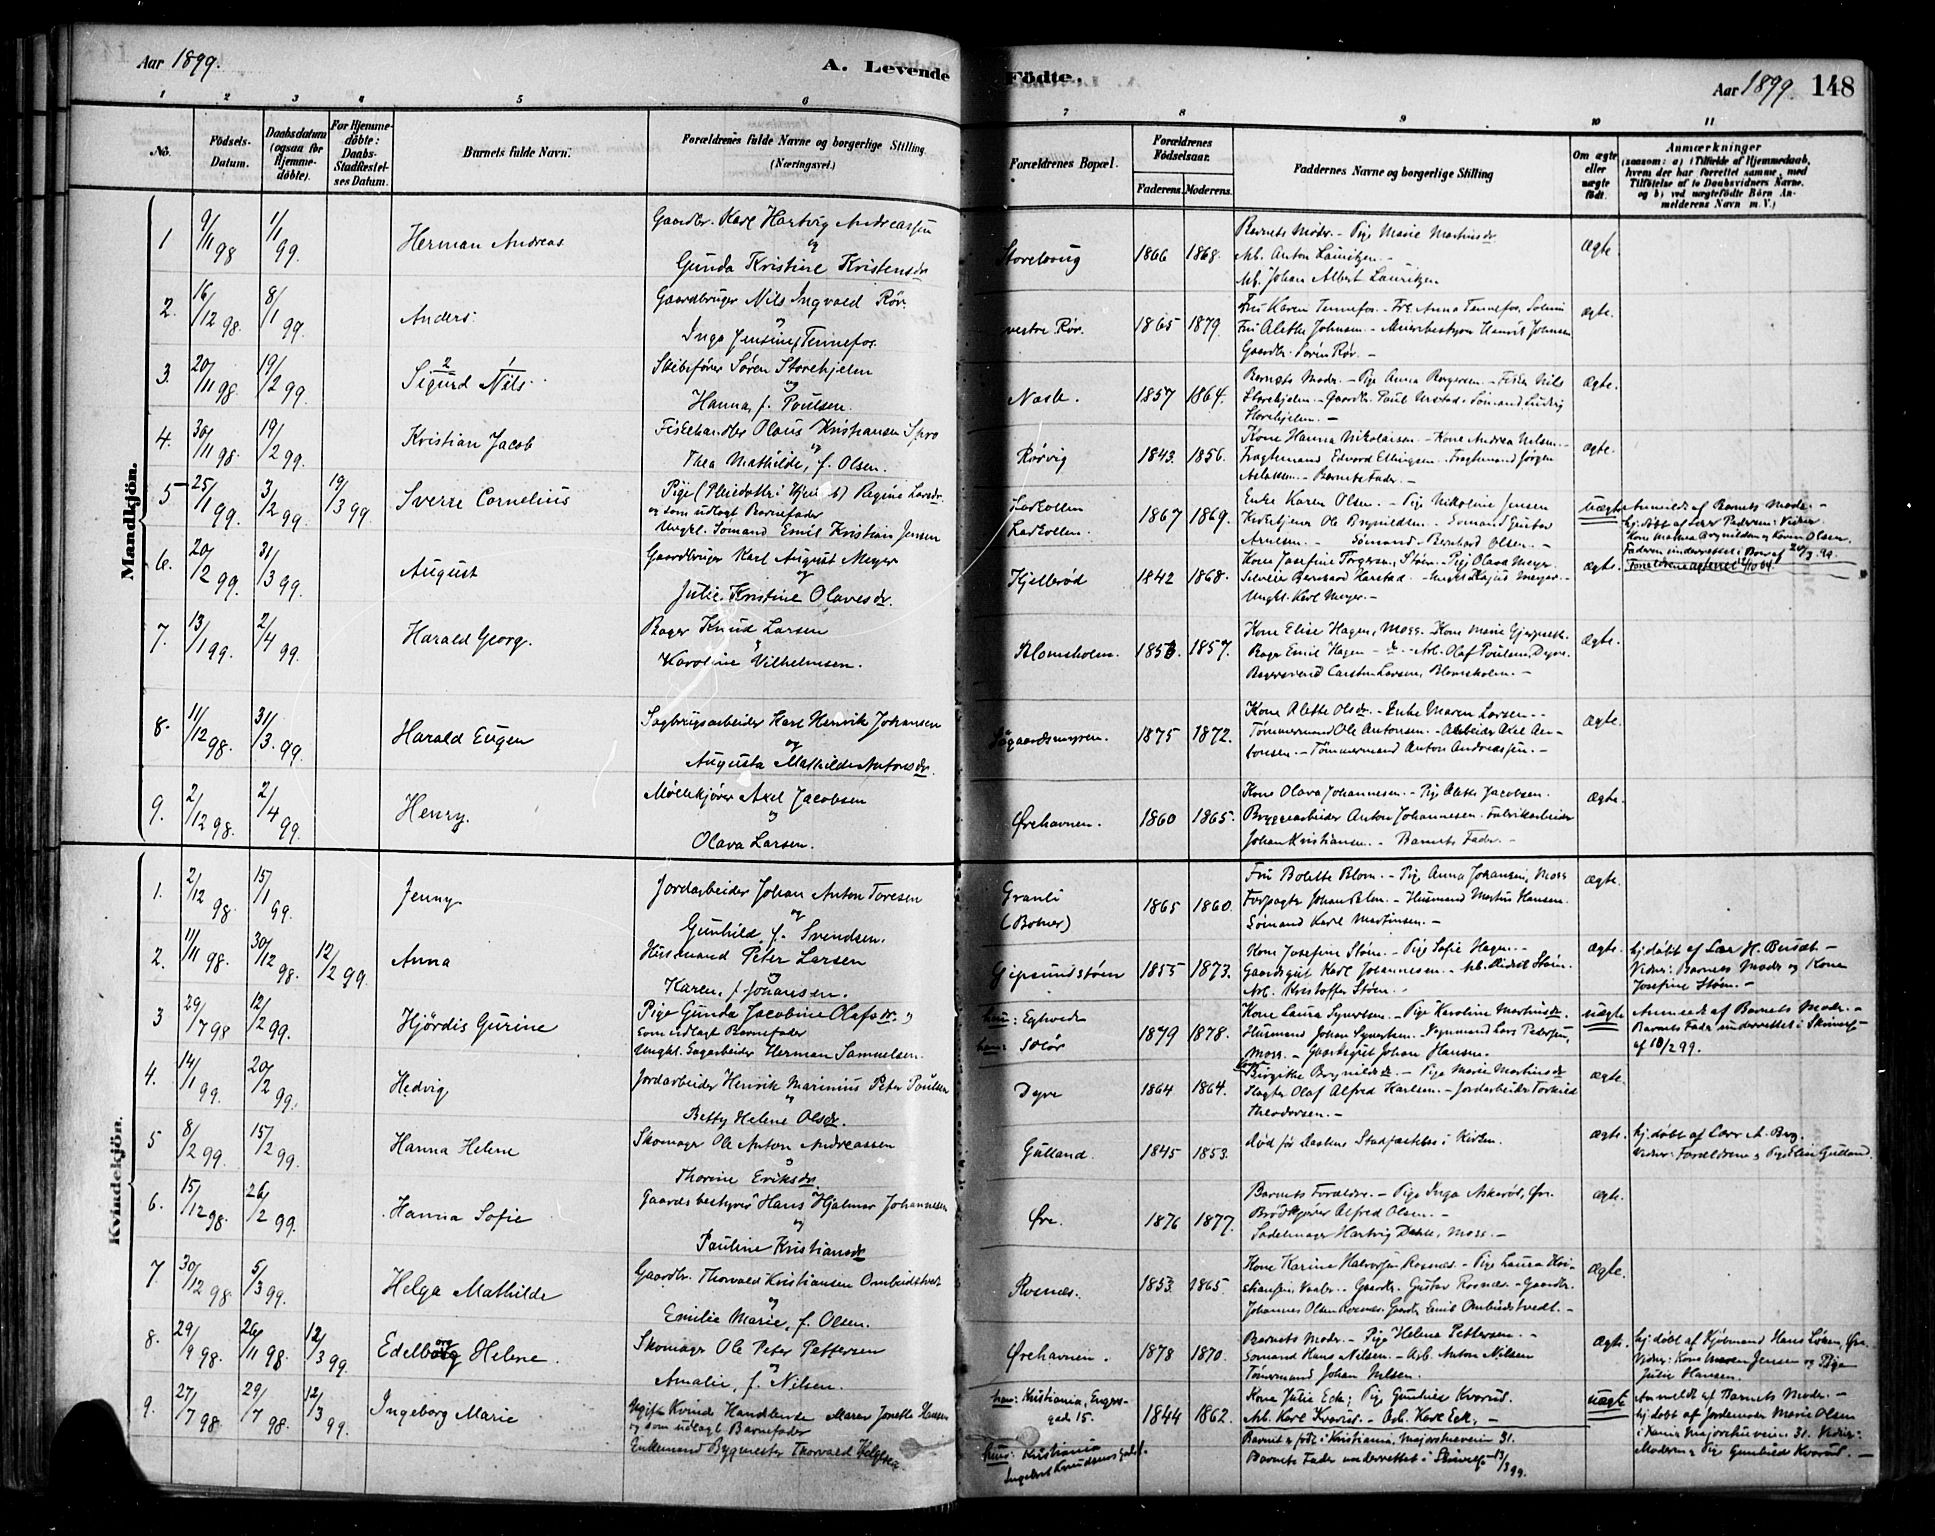 Aar 1899.
A. Levende
1 2 3 4 5 6
No.
Födsels-Datum.
Daabsdatum (ogsaa for Hjemme-döbte).
For Hjemme-döbte: Daabs-Stadfæstel-ses Datum.
Barnets fulde Navn.
Forældrenes fulde Navne og borgerlige Stilling
(Næringsvei.)
Mandkjön.
1 9/11 98 1/1 99. Herman Andreas Gaardbr. Karl Hartvig Andreassen
og
Gunda Kristine Kristensdr
2. 16/12 98. 8/1 99. Anders. Gaardbruger Nils Ingvald Rör.
Inga Jensine Tennefos.
3. 20/11 98. 19/2 99. Sigurd Nils. Skibsförer Sören Storehjelm
og
Hanna, f. Poulsen.
4. 30/11 98. 19/2 99. Kristian Jacob Fiskehandler Olaus Kristiansen Spro
og
Thea Mathilde, f. Olsen.
5 25/1 99. 3/2 99. 19/3 99 Sverre Cornelius Pige Regine Larsdr
og som udlagt Barnefader
Ungkl. Sömand Emil Kristian Jensen
6. 20/2 99. 31/3 99. August Gaardbruger Karl August Meyer
og
Julie Kristine Olavesdr.
7. 13/1 99. 2/4 99. Harald Georg. Bager Knud Larsen
Karoline Vilhelmsen.
8. 11/12 98. 31/3. 99. Harald Eugen Sagbrugsarbeider Karl Henrik Johansen
og
Augusta Mathilde Antonsdr.
9. 2/12 98. 2/4 99. Henry. Möllekjörer Axel Jacobsen
og
Olava Larsen.
Kvindekjön.
1. 2/12 98. 15/1 99. Jenny Jordarbeider Johan Anton Toresen
og
Gunhild, f. Svendsen.
2. 11/11 98. 30/12 98. 12/2 99. Anna Husmand Peter Larsen
og
Karen, f. Johansen.
3 29/7 98 12/2 99. Hjördis Gurine Pige Gunda Jacobine Olafsdr. og
som udlagt Barnefader
Ungkl. Sagarbeider Herman Samuelsen.
4. 14/1 99. 20/2 99. Hedvig Jordarbeider Henrik Marinius Peter Paulsen
og
Betty Helene Olsdr.
5 8/2 99. 15/2 99. Hanna Helene Skomager Ole Anton Andreassen
Thorine Eriksdr
6. 15/12 98. 26/2 99. Hanna Sofie Gaardsbestyrer Hans Hjalmar Johannesen
og
Pauline Kristiansdr
7. 30/12 98. 5/3 99. Helga Mathilde Gaardbr. Thorvald Kristiansen Ombudstvedt
og
Emilie Marie, f. Olsen.
8. 29/9 98. 26/11 98. 12/3 99. Edelborg Helene. Skomager Ole Peter Pettersen
Amalie, f. Nilsen.
9. 27/7 98. 29/7 98. 12/3 99. Ingeborg Marie Ugift Kvinde Handlende Maren Jonette Hansen
og som udlagt Barnefader
Enkemand Bygmester Thorvald Helgesen
Födte.
Aar 1899. 148
7 8 9 10 11
Forældrenes Bopæl.
Forældrenes Födselsaar.
Faderens. Moderens.
Faddernes Navne og borgerlige Stilling
Om ægte eller uægte födt.
Anmærkninger
(saasom: a) i Tilfælde af Hjemmedaab, hvem der har forrettet samme, med Tilföielse af to Daabsvidners Navne, og b) ved uægtefödte Börn Anmelderens Navn m. V.)
1866 1868. Barnets Moder. - Pige Marie Martinsdr. Ægte.
Arb. Anton Lauritzen -
Arb. Johan Albert Lauritzen
vestre Rör. 1865 1879. Fru Karen Tennefos. - Frk. Anna Tennefos. ægte.
Fru Alette Johnsen - Meieribestyrer Henrik Johnsen
Gaardbr. Sören Rör. -
1857 1864. Barnets Moder. - Pige Anna Borgersen. - Fisker Nils Ægte
Storehjelm. - Gaardbr. Paul - Sömand Ludvig
Storehjelm. -
Rörvig 1843. 1856. Kone Hanna Nikolaisen - Kone Andrea Nilsen. - ægte.
Fragtemand Edvard Ellingsen. Fragtemand Jörgen
Aslaksen - Barnets Fader. -
Larkollen 1867 1869. Enke Karen Olsen. - Pige Nikoline Jensen uægte Anmeldt af Barnets Moder. -
Larkollen. Kirketjener Ole Brynildsen. - Sömand Gustav
Arnesen. - Sömand Bernhard Olsen. -
Kjellerød 1842 1868. Kone Josefine Torgersen, Stöm - Pige Olava Meyer ægte.
Ungkl. Karl Meyer. -
Blomsholm. 1857. Kone Elise Hagen, Moss. - Kone Marie Ægte.
Bager Emil Hagen - do - Arb. Olaf Poulsen, Dyre.
Bagersvend Carsten Larsen, Blomsholm. -
1875 1872. Kone Alette Olsdr. - Enke Maren Larsen. - ægte.
Tömmermand Ole Antonsen. - Arbeider Axel An-
tonsen. - Tömmermand Anton Andreassen. -
Ørehavnen. 1860 1865. Kone Olava Johannesen. - Pige Alette Jacobsen. ægte.
Bryggearbeider Anton Johannesen. Fabrikarbeider
Johan Kristiansen. - Barnets Fader. -
Granli 1865 1860. Fru Bolette Blom. - Pige Anna Johansen, Moss ægte.
(Botner) Forpagter Johan Blom. - Husmand Martin Hansen.
Sömand Karl Martinsen. -
Gipsundstöm 1855 1873. Kone Josefine Stöm. - Pige Sofie Hagen. - ægte. hj. døbt af Lær. H. Busæt -
Gaardsgut Karl Johannesen. - Arb. Didrik Stöm. Vidner: Barnets Moder og Kone
Arb. Kristoffer Stöm. - Josefine Stöm. -
1879 1878. Kone Laura Syvertsen. - Pige Karoline Martinsdr uægte Anmeldt af Barnets Moder. -
Husmand Johan Syvertsen. - Lars Pedersen, Barnets Fader underrettet i Skrivelse
Moss. - Gaardsgut Johan Hansen. af 18/2 99.
Dyre 1864 1864. Birgitte Brynildsdr. - Pige Marie Martinsdr ægte.
Slagter Olaf Alfred Karlsen. - Jordarbeider Torkild
Theodorsen. -
Gulland. 1845 1853. död för Daabens Stadfæstelse i Kirken. ægte. hj. döbt af Lær A. Berg.
Vidner: Forældrene og Pige Elise Gulland.
Øre. 1876 1877. Barnets Forældre. - Pige Inga Askeröd, Øre. ægte.
Brödkjörer Alfred Olsen. -
Sadelmager Hartvig Dahle, Moss. -
Rosnæs. 1853 1865. Kone Karine Halvorsen Rosnæs - Pige Laura Kri- Ægte.
stiansen Vaaler. - Gaardbr. Gustav Rosnæs. - Gaardbr.
Johannes Olsen Rosnæs. Gaardbr. Emil Ombudstvedt. -
Ørehavnen. 1878 1870. Barnets Moder. - Pige Helena Pettersen. - ægte. hj. döbt af Kjöbmand Hans Löken, Øre.
Sömand Hans Nilsen. - Arb. Anton Nilsen Vidner: Kone Maren Jensen og Pige
Tömmermand Johan Nilsen. Julie Hansen.
Kristiania, 1844 1862. Kone Julie Eck; Pige Gunhild Kvarud. uægte Anmeldt af Barnets Moder. -
gade 15. Arb. Karl Kvarud. - Arb. Karl Eck. - hj. döbt af Jordemoder Marie Olsen
Barnet er födt i Kristiania, Majorstuveien 31. i Xania Majorstuveien 31. Vidner:
hun: Kristiania Barnets Fader underrettet i Skrivelse 13/3 99. Moderen og Pige Gunhild Kvarud. -
Ingebret Knudsens gade 1.